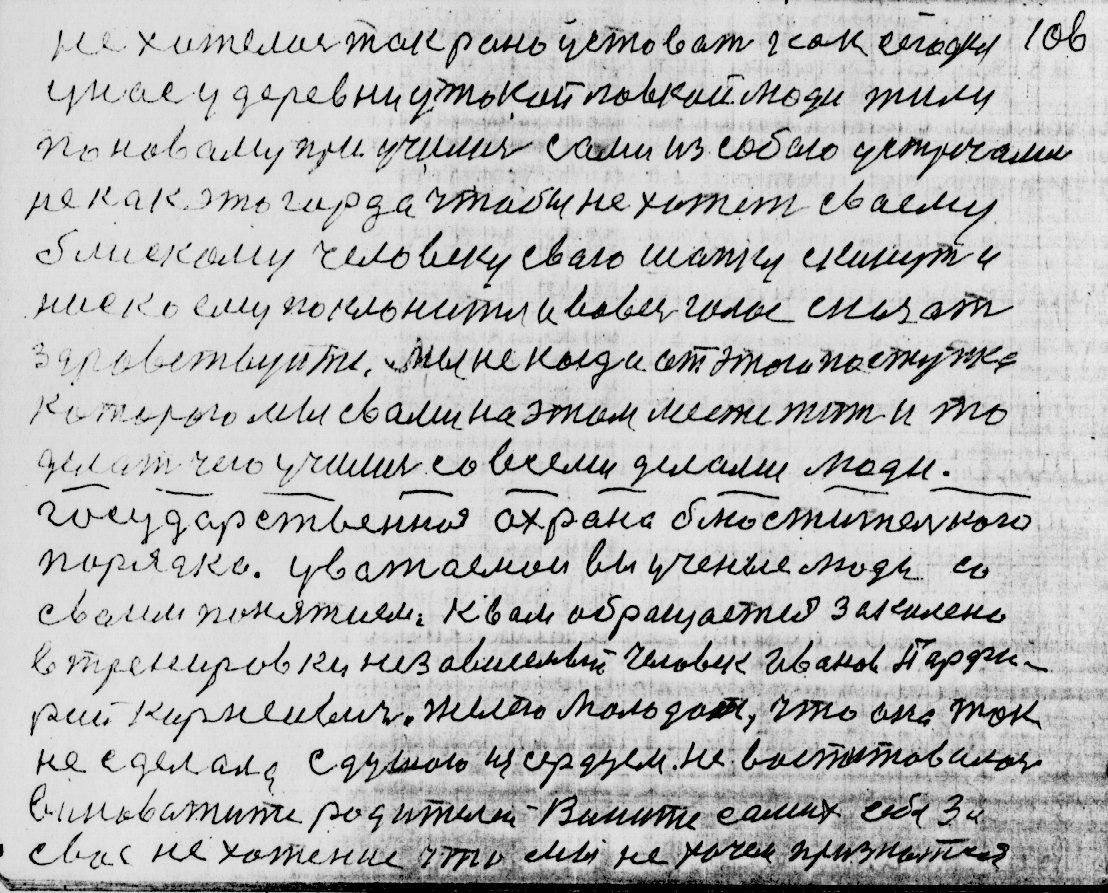 не хотелос так рано устават как сегодня 10в
у нас у деревни у токой ловкой люди жили
по новаму приучилис сами из собою устречами
не как это горда чтобы не хотет сваему
блискому человеку сваю шапку скинут и
ниско ему поклонитца и вовез голос сказат
здравствуйти. Мы не когда от этого поступка
которого мы с вами на этом месте тот и то
делат чего училис со всеми делами люди.
государственная охрана блюстительного
порядка. уважаемои вы ученые люди со
сваим понятием. К вам обращается закалено
в тренировки независемый человек Иванов Парфи-
рий Карнеевич. жалею молодост, что она так
не сделала с душою и сердцем. не воститовалас
виноватити родители - Вините самих себя за
свае не хотение что мы не хочем признатся